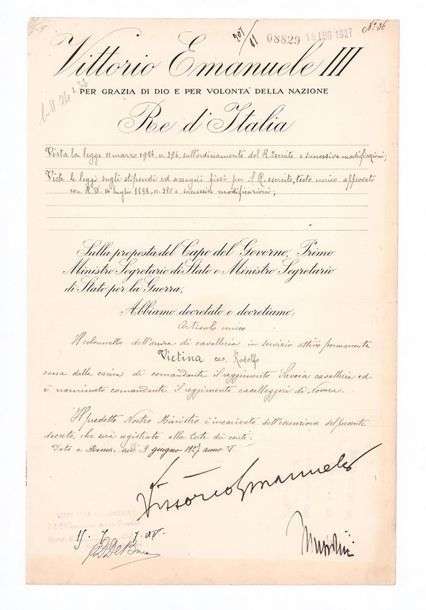 08829
Vittorio Emanuele III
PER GRAZIA DI DIO E PER VOLONTÀ DELLA NAZIONE
Re d'Italia
Vista la legge 11 marzo 1926, n. 396, sull'ordinamento del R. esercito e successive modificazioni;
Viste le leggi sugli stipendi ed assegni fissi per il R. esercito, testo unico approvato
con R. D. 14 luglio 1898, n. 380 e successive modificazioni;
Sulla proposta del Capo del Governo, Primo
Ministro Segretario di Stato e Ministro Segretario
di Stato per la Guerra;
Abbiamo decretato e decretiamo
Articolo unico
Il colonnello dell'arma di cavalleria in servizio attivo permanente
Rodolfo
cessa dalla carica di comandante il reggimento Savoia cavalleria ed
è nominato comandante il reggimento cavalleggeri di
Il predetto Nostro Ministro è incaricato dell'esecuzione del presente
decreto, che sarà registrato alla Corte dei conti.
Dato a Roma, addì 3 giugno 1927 anno V
Vittorio Emanuele
Mussolini